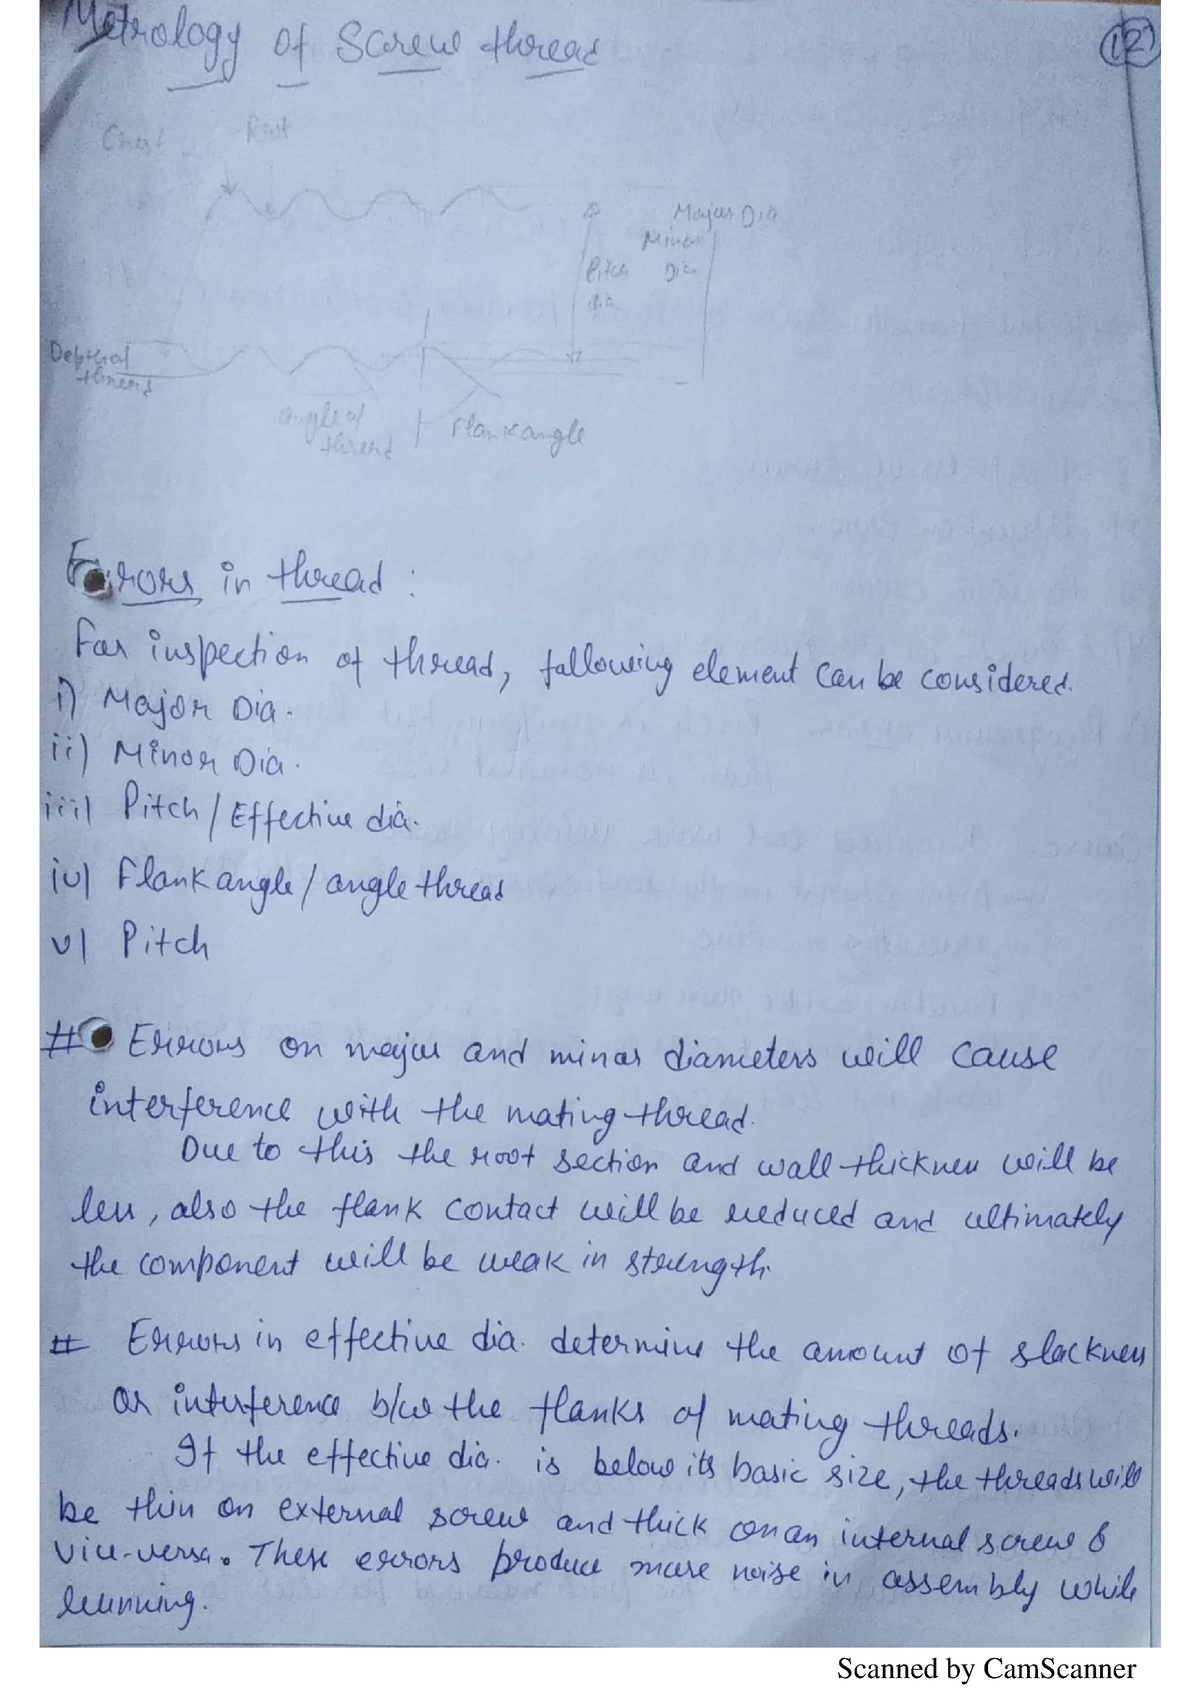 Metrology of Screw thread
12
Crest Root
Major Dia
Minor
Pitch Dia
dia
Depth of
thread
angle of
thread
Flank angle
Errors in thread :
For inspection of thread, following element can be considered.
i) Major Dia.
ii) Minor Dia.
iii) Pitch / Effective dia.
iv) Flank angle / angle thread
v) Pitch
# Errors on major and minor diameters will cause
interference with the mating thread.
Due to this the root section and wall thickness will be
less, also the flank contact will be reduced and ultimately
the component will be weak in strength.
# Errors in effective dia. determine the amount of slackness
or interference b/w the flanks of mating threads.
If the effective dia. is below its basic size, the threads will
be thin on external screw and thick on an internal screw &
vice-versa. These errors produce more noise in assembly while
running.
Scanned by CamScanner